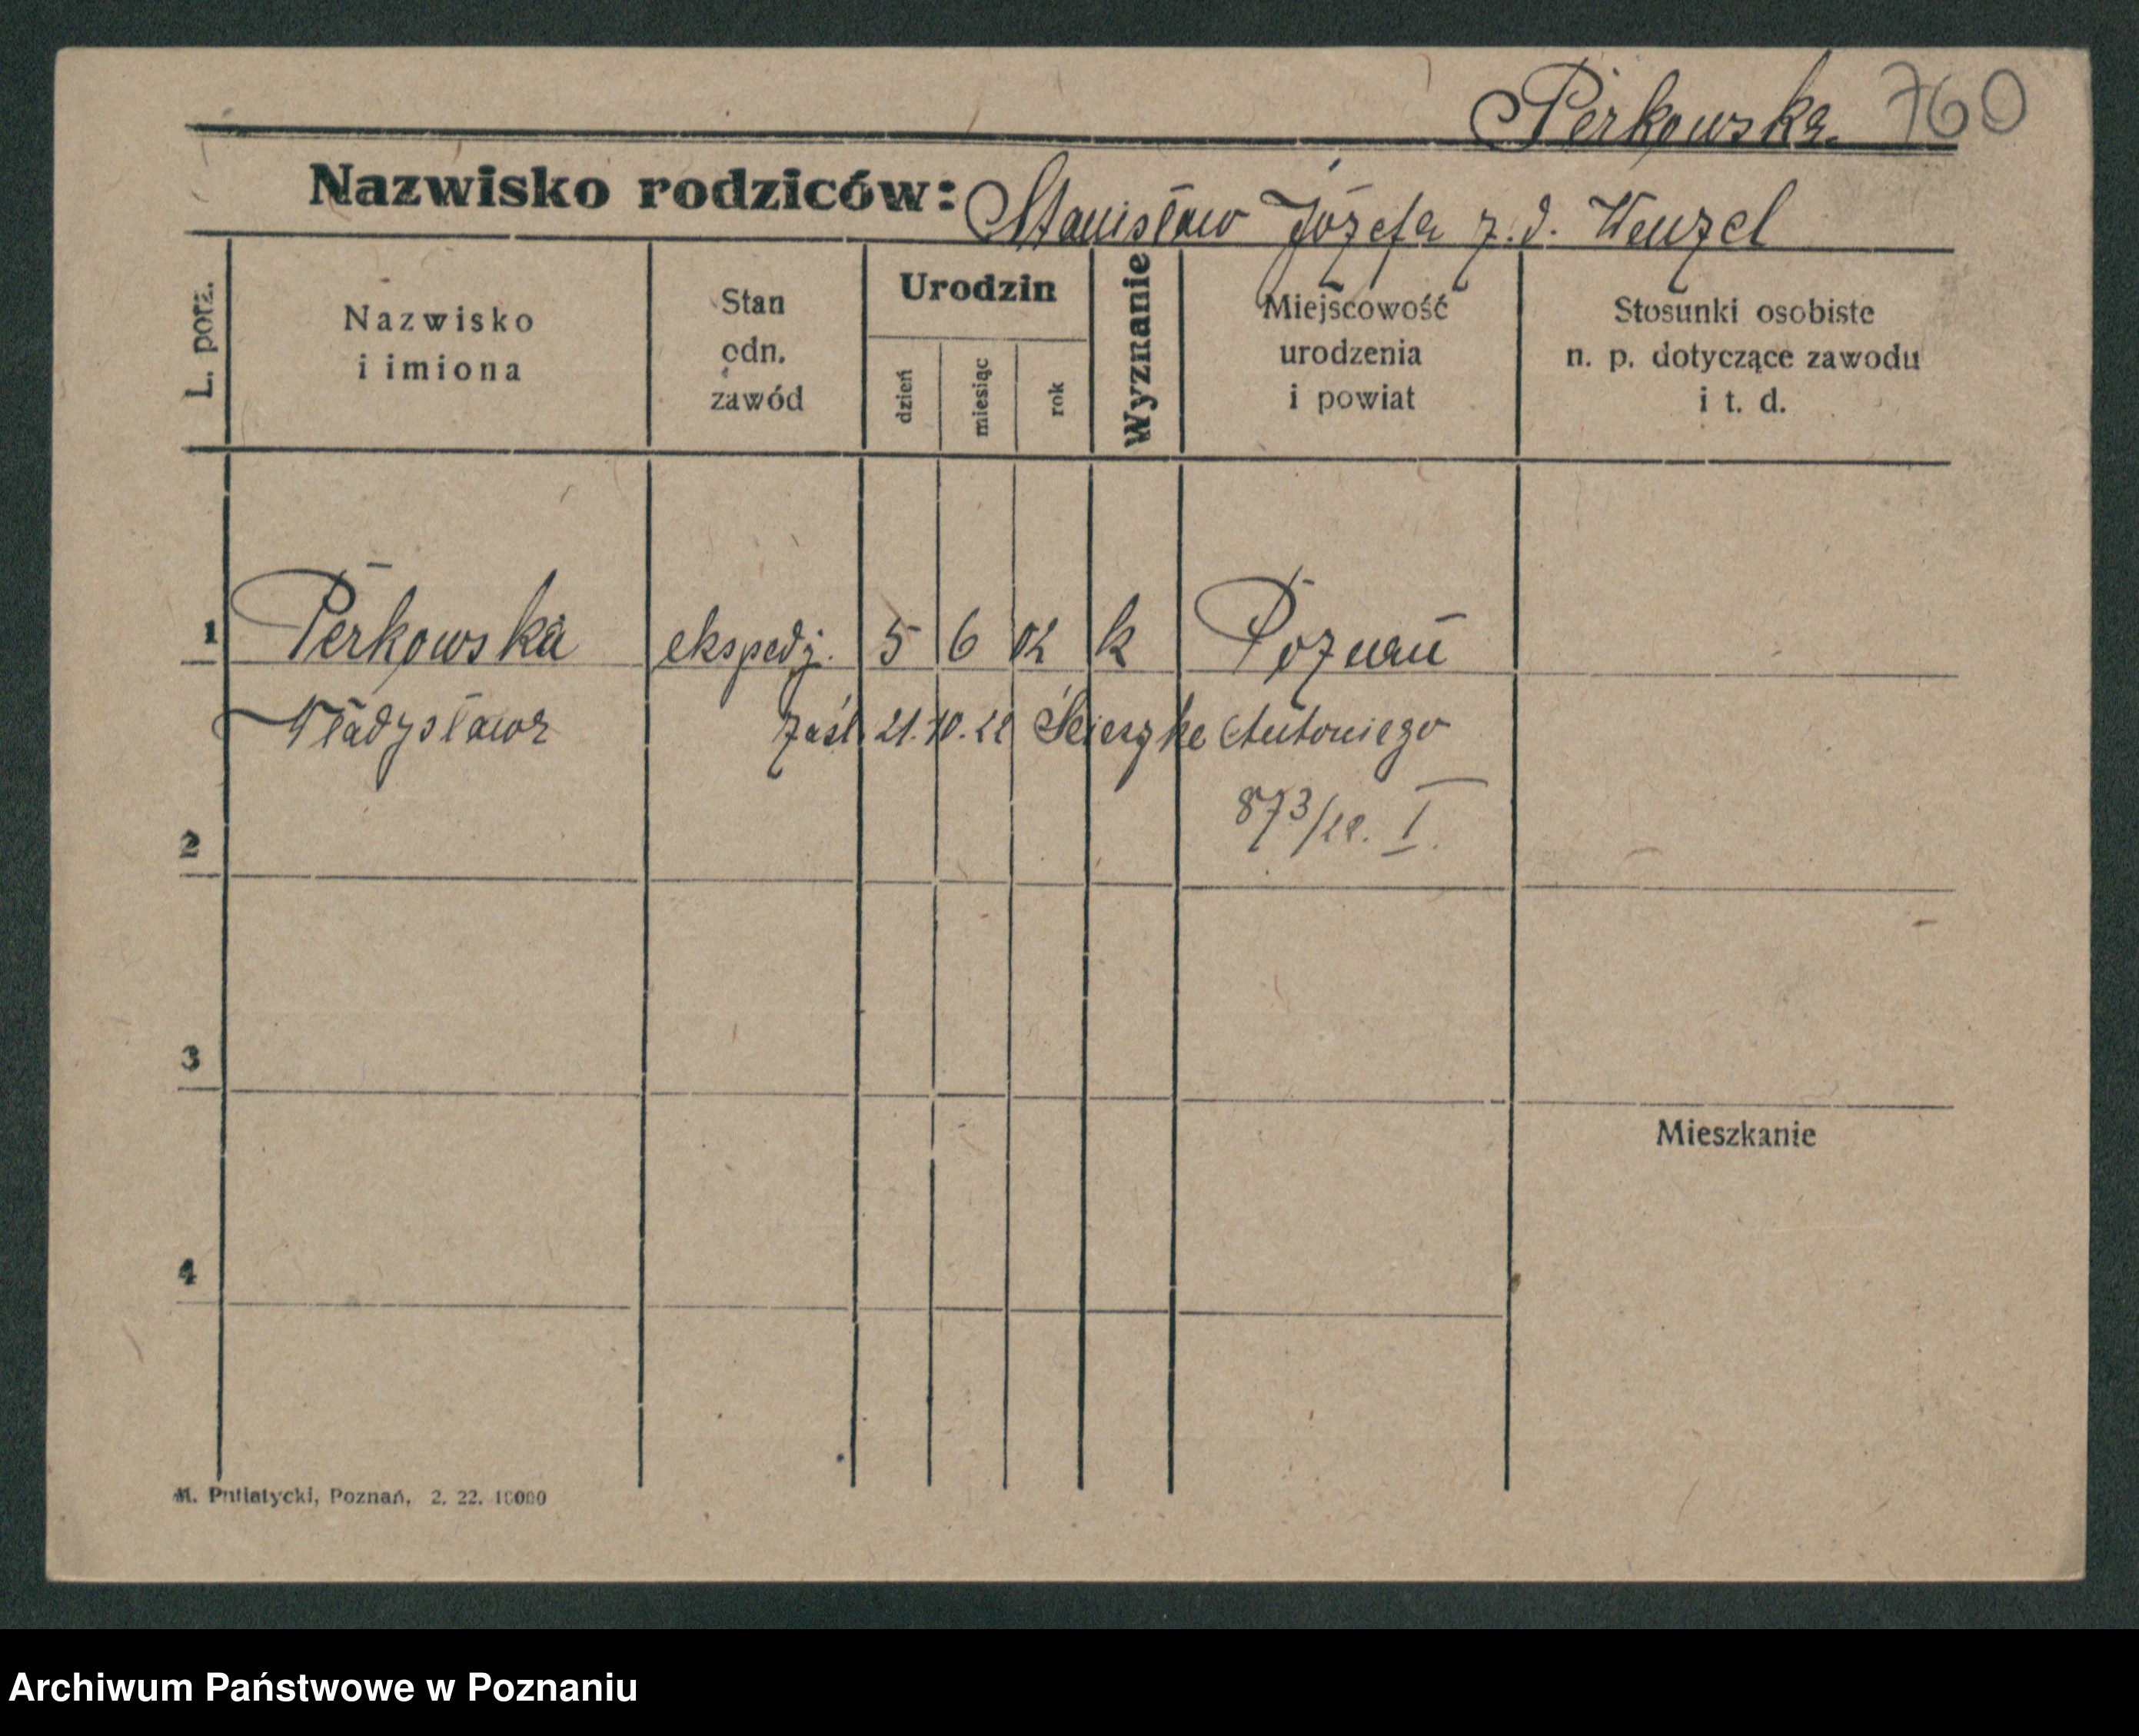 Perkowska 760
Nazwisko rodziców: Stanisław Józefa z. d. Wenzel
L. porz.
Nazwisko
i imiona
Stan
odn.
zawód
Urodzin
dzień
miesiąc
rok
Wyznanie
Miejscowość
urodzenia
i powiat
Stosunki osobiste
n. p. dotyczące zawodu
i t. d.
1 Perkowska ekspedj. 5 6 02 k Poznań
Władysława zaśl. 21.10.22 Antoniego
873/22. I.
2
3
Mieszkanie
4
M. Putiatycki, Poznań, 2. 22. 10000
Archiwum Państwowe w Poznaniu